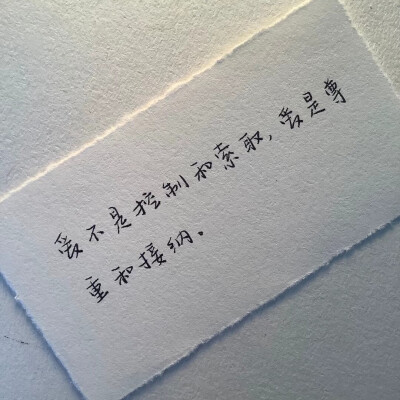 爱不是控制和索取,爱是尊
重和接纳。